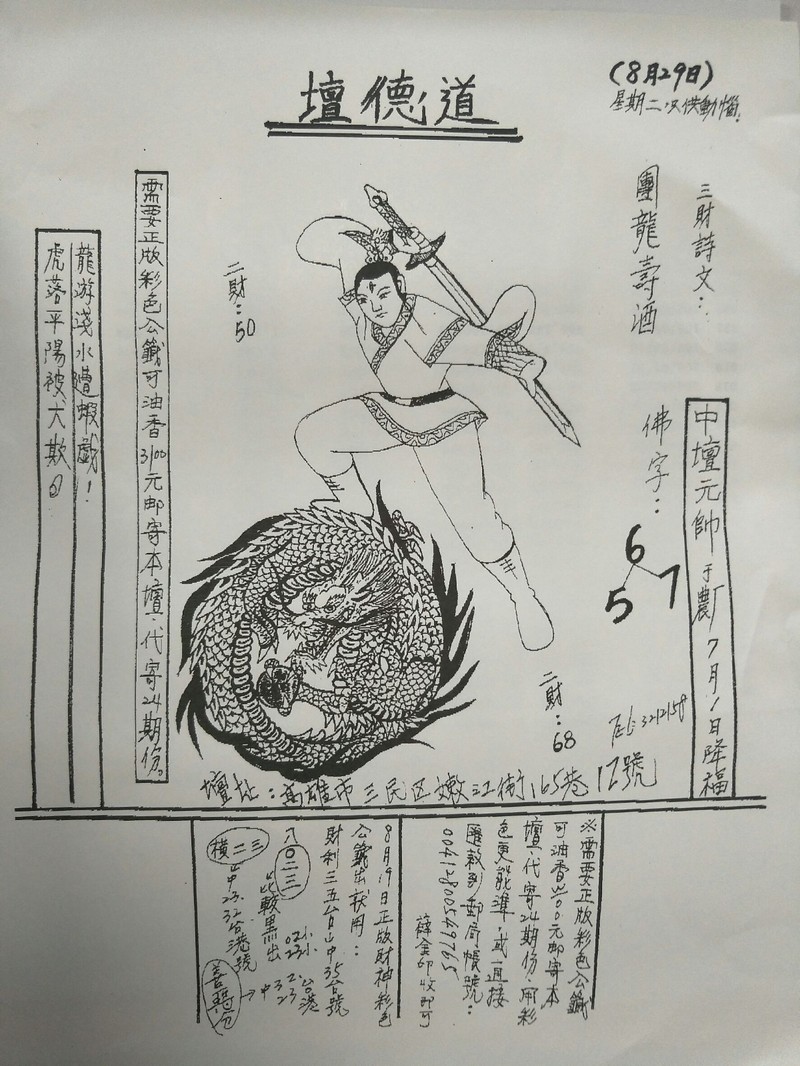 道德壇
(8月29日)
三財詩文：
團龍壽酒
佛字：
6
5 7
中壇元帥于農厂7月1日降福
Tel:3212158
二財：50
二財：68
需要正版彩色公籤可油香3100元邮寄本壇、代寄24期份。
龍游淺水遭蝦戲！
虎落平陽被犬欺
壇址：高雄市三民区嫩江街165巷12號
※需要正版彩色公籤
可油香3100元邮寄本
壇、代寄24期份．用彩
色更能準．或直接
匯款到郵局帳號：
00412800549765
8月19日正版財神彩色
公籤出获用：
財利三五台自山中35台號
八0二三
比較黑出
02.
23.
台港
2.
中32
23
橫二三
中23.32台港號